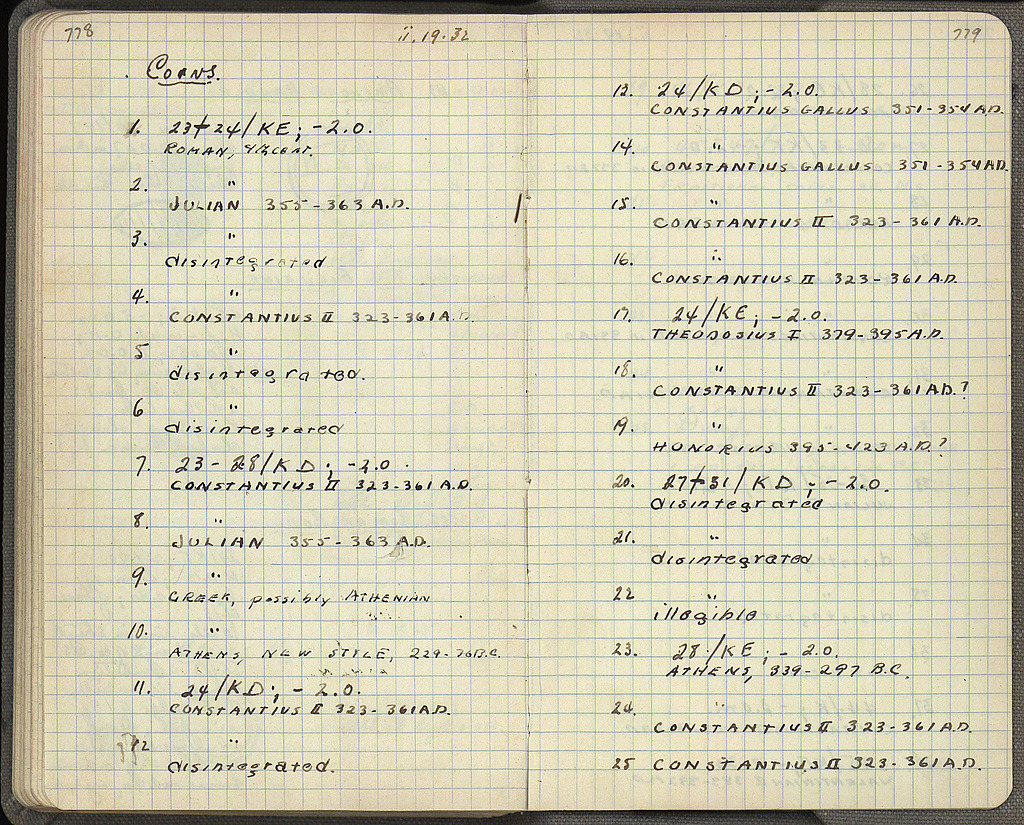 778
ii.19.32
Coins.
1. 23+24/KE; -2.0.
ROMAN, 4½ cent.
2. "
JULIAN 355-363 A.D.
3. "
disintegrated
4. "
CONSTANTIUS II 323-361 A.D.
5 "
disintegrated.
6 "
disintegrated
7. 23-28/KD; -2.0.
CONSTANTIUS II 323-361 A.D.
8. "
JULIAN 355-363 A.D.
9. "
GREEK, possibly ATHENIAN
10. "
ATHENS, NEW STYLE, 229-76 B.C.
11. 24/KD; -2.0.
CONSTANTIUS II 323-361 A.D.
12 "
disintegrated.
779
13. 24/KD; -2.0.
CONSTANTIUS GALLUS 351-354 A.D.
14. "
CONSTANTIUS GALLUS 351-354 A.D.
15. "
CONSTANTIUS II 323-361 A.D.
16. "
CONSTANTIUS II 323-361 A.D.
17. 24/KE; -2.0.
THEODOSIUS I 379-395 A.D.
18. "
CONSTANTIUS II 323-361 A.D.?
19. "
HONORIUS 395-423 A.D.?
20. 27+31/KD; -2.0.
disintegrated
21. "
disintegrated
22 "
illegible
23. 28/KE; -2.0.
ATHENS, 339-297 B.C.
24. "
CONSTANTIUS II 323-361 A.D.
25 CONSTANTIUS II 323-361 A.D.